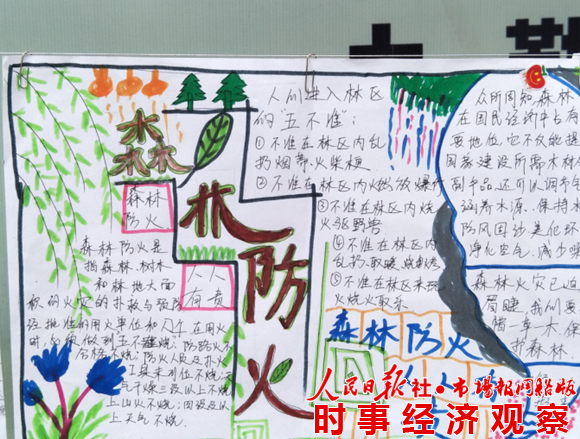 森林防火
森林
防火
人人
有责
森林防火是
指森林、林木
和林地火灾
积的火灾的扑救与预防
经批准的用火单位和个人在用火
时，必须做到五不烧：防路火不
合格不烧；防火人员及扑火
工具未到位不烧；天
气干燥三级以上不烧
上山火不烧；四级及以
上天气不烧。
人们进入林区
的"五不准"：
①不准在林区内乱
扔烟蒂、火柴梗
②不准在林区内燃放爆竹
③不准在林区内烧
火驱野兽
④不准在林区内
⑤不准在林区
火烧火取乐
森林防火
众所周知森林
在国民经济中占有
要地位，它不仅能提
国家建设所需木材
副产品，还可以调节气
涵养水源、保持水
防风固沙美化环
净化空气、减少噪
森林火灾已迫
眉睫，我们要
惜一草一木，保
护森林
人民日报社·市場報網船版
时事经济观察